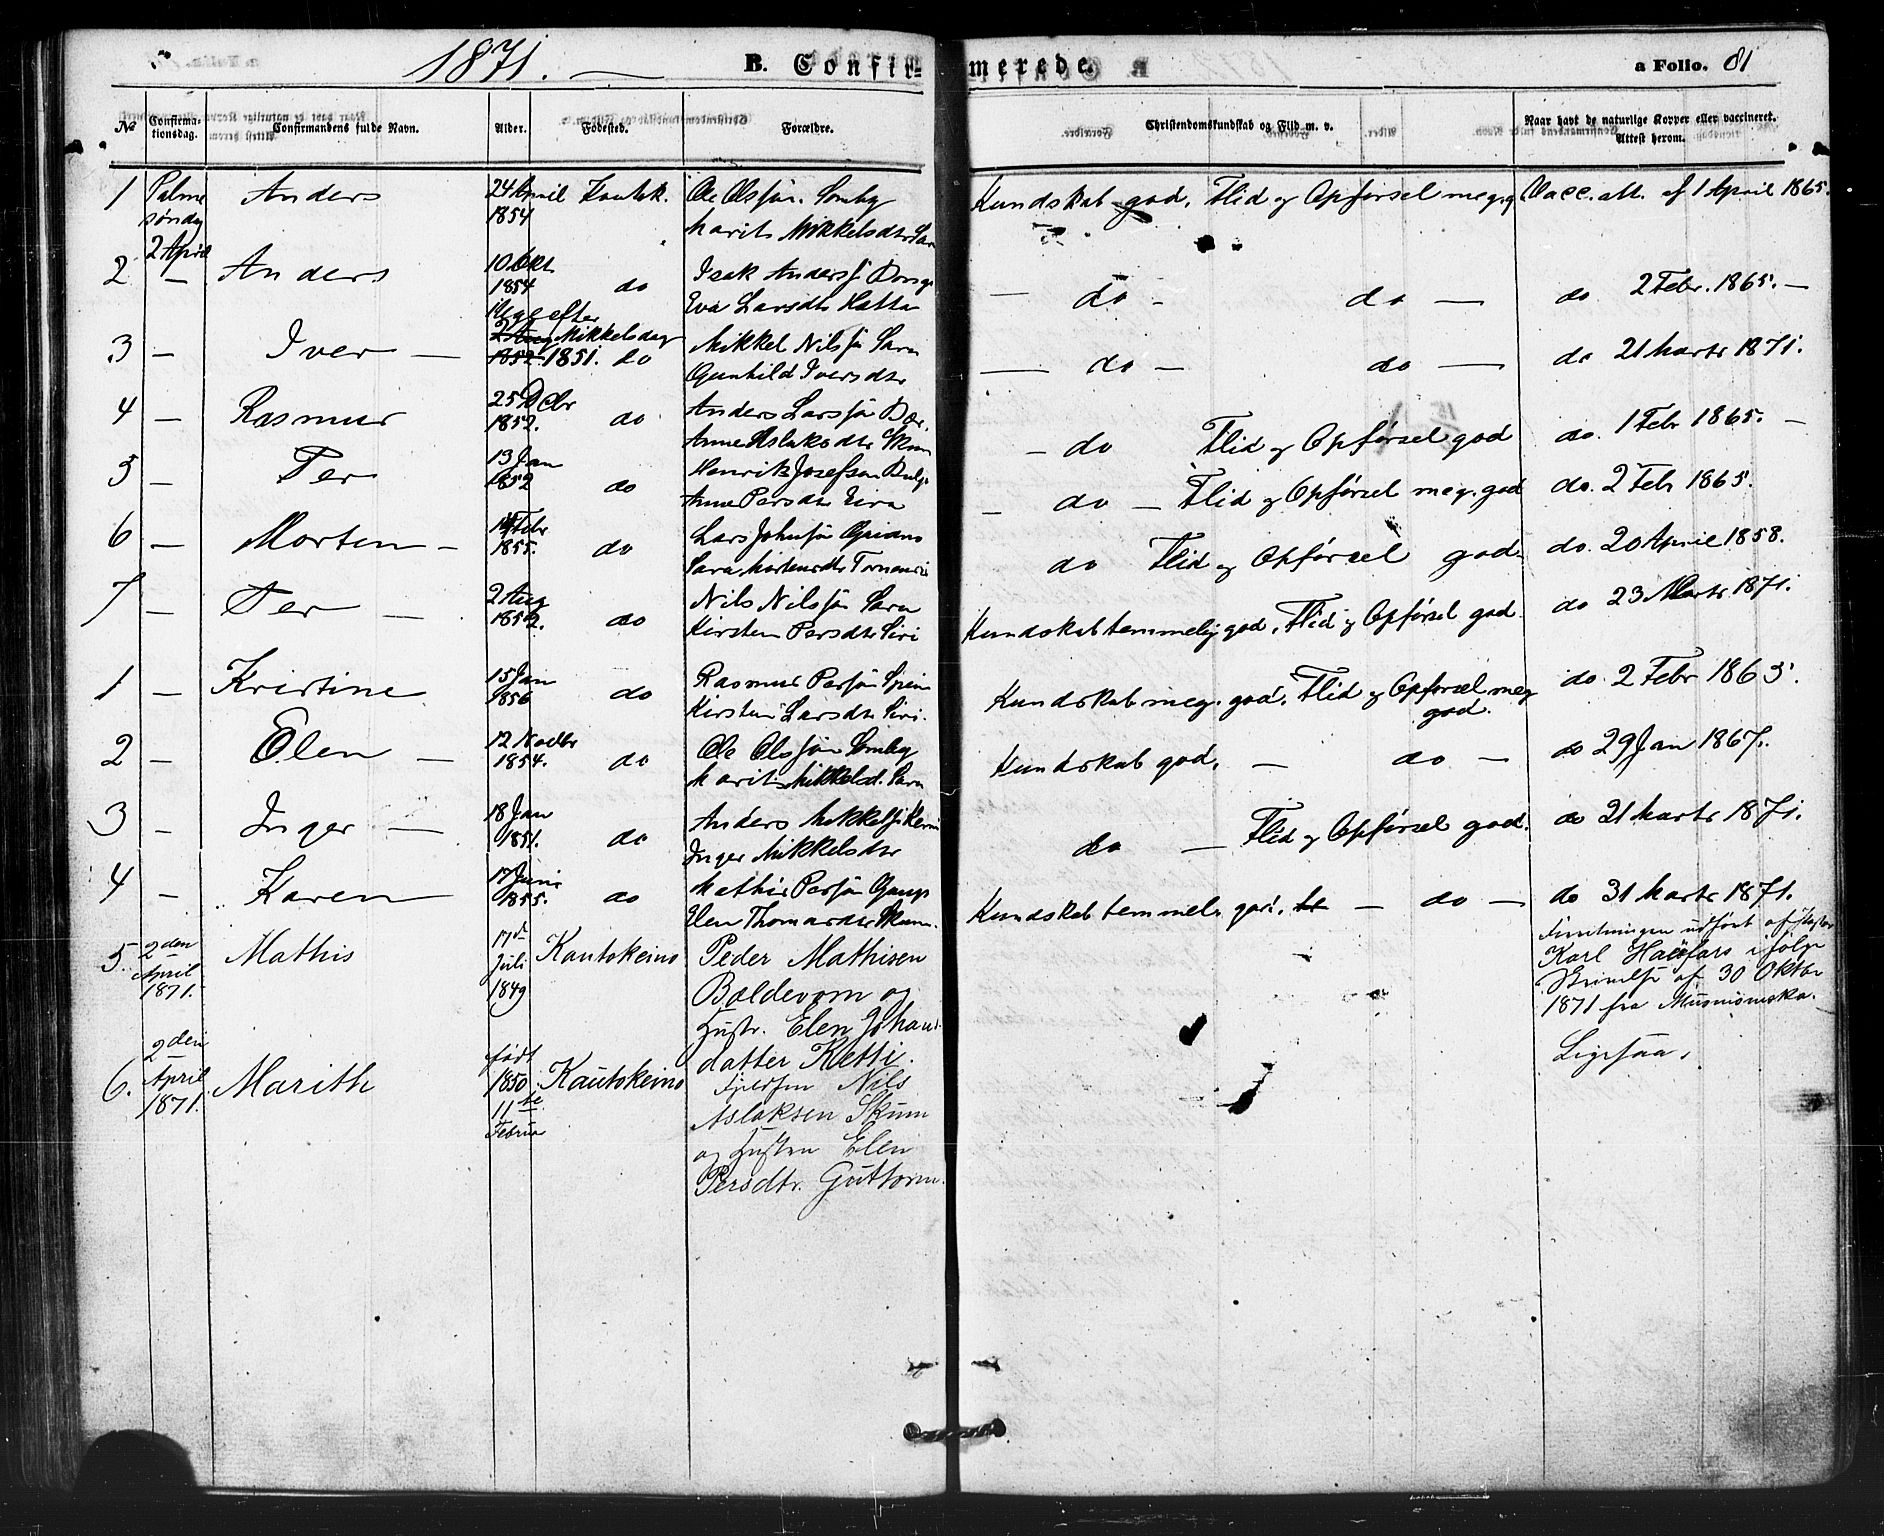 1871. — B. Confirmerede. a Folio. 81
No Confirmationsdag. Confirmandens fulde Navn. Alder. Fødested. Forældre. Christendomskundskab og Flid m. v. Naar havt de naturlige Kopper eller vaccineret. Attest herom.
1 Palme Anders 24 April Kautok. Ole Olssøn Somby Kundskab god, Flid og Opførsel meg. g Vacc. att. af 1 April 1865.
søndag 1854 Marit Mikkelsdtr Sara
2 April
2 — Anders 10 Okt Isak Anderss
1854 do Eva Larsdtr Hætta — do — do — do 2 Febr. 1865. —
Uge efter
3 — Iver — 2 Aug Mikkelsdag Mikkel Nilssøn Sara
1852 1851. do Gunhild Iversdtr — do — do — do 21 Marts 1871.
4 — Rasmus 25 Dcbr Anders Larssøn
1852. do Anne Aslaksdtr Skum — do Flid og Opførsel god do. 1 Febr 1865. —
5 — Per 13 Jan Henrik Josefsen
1852 do Anne Persdtr — do — Flid og Opførsel meg. god do. 2 Febr 1865.
6 — Morten — Febr Lars Johnssøn
1855. do Sara Mortensdtr do Flid og Opførsel god do. 20 April 1858.
7 — Per — 2 Aug Nils Nilssøn Sara
1852. do Kirsten Persdtr Siri Kundskab temmelig god, Flid og Opførsel god do 23 Marts 1871.
1 — Kristine 15 Jan Rasmus Perssøn Spein
1856 do Kirsten Larsdtr Siri. Kundskab meg. god, Flid og Opførsel meg god. do. 2 Febr 1865.
2 — Elen — 12 Novbr Ole Olssøn Somby
1854. do Marit Mikkelsd. Sara Kundskab god, — do — do 29 Jan 1867.
3 — Inger — 18 Jan Anders Mikkelss
1851. do Inger Mikkelsdtr do — Flid og Opførsel god. do 21 Marts 1871.
4 — Karen 17 Juni Mathis Perssøn Gaup
1855. do Elen Thomasdtr Skum. Kundskab temmel. god. — do — do 31 Marts 1871.
5. 2den April 1871. Mathis 17de Juli 1849 Kautokeino Peder Mathisen
Boldevom og
Hustr. Elen Johans-
datter Ketti. udført af Pastor
Karl
af 30 Oktbr
1871 fra
6. 2den April 1871. Marith født 1850 11te Februar Kautokeino Nils
Aslaksen Skum
og Hustru Elen
Persdtr. Guttorm. Ligesaa.